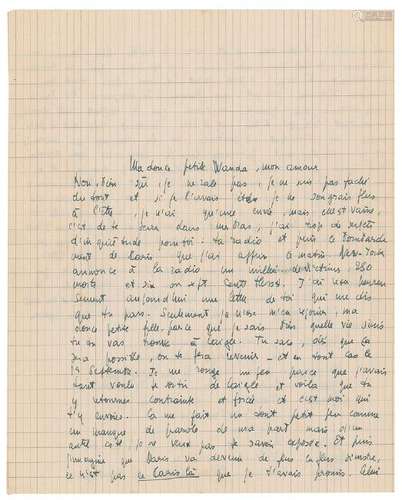 Ma douce petite Wanda, mon amour
Non, bien sûr, je ne râle pas, je ne suis pas fâché
du tout et si je l'avais été je ne songerais plus
à l'être, je n'ai qu'une envie, mais elle est vaine,
c'est de te serrer dans mes bras, j'ai trop de sujets
d'inquiétude pour toi. La radio et puis ce bombarde
ment de Paris que j'ai appris ce matin. Hier soir
annonce à la radio un millier de victimes, 250
morts et six ou sept cents blessés. J'ai reçu heureu
sement aujourd'hui une lettre de toi qui me dit
que tu pars. Seulement je n'ose m'en réjouir, ma
douce petite fille, parce que je sais très quelle vie
tu vas trouver à Laigle. Tu sais, dès que ça
sera possible, on te fera revenir - et en tout cas le
1er Septembre. Je me ronge un peu parce que j'avais
tant voulu te sortir de Laigle et voilà que tu
y retournes contrainte et forcée et c'est moi qui
t'y envoie. Ça me fait un tout petit peu comme
un manque de parole de ma part mais d'un
autre côté je ne veux pas te savoir exposée. Et puis
j'imagine que Paris va devenir de plus en plus sinistre,
ce n'est pas ce Paris là que je t'avais promis. Celui